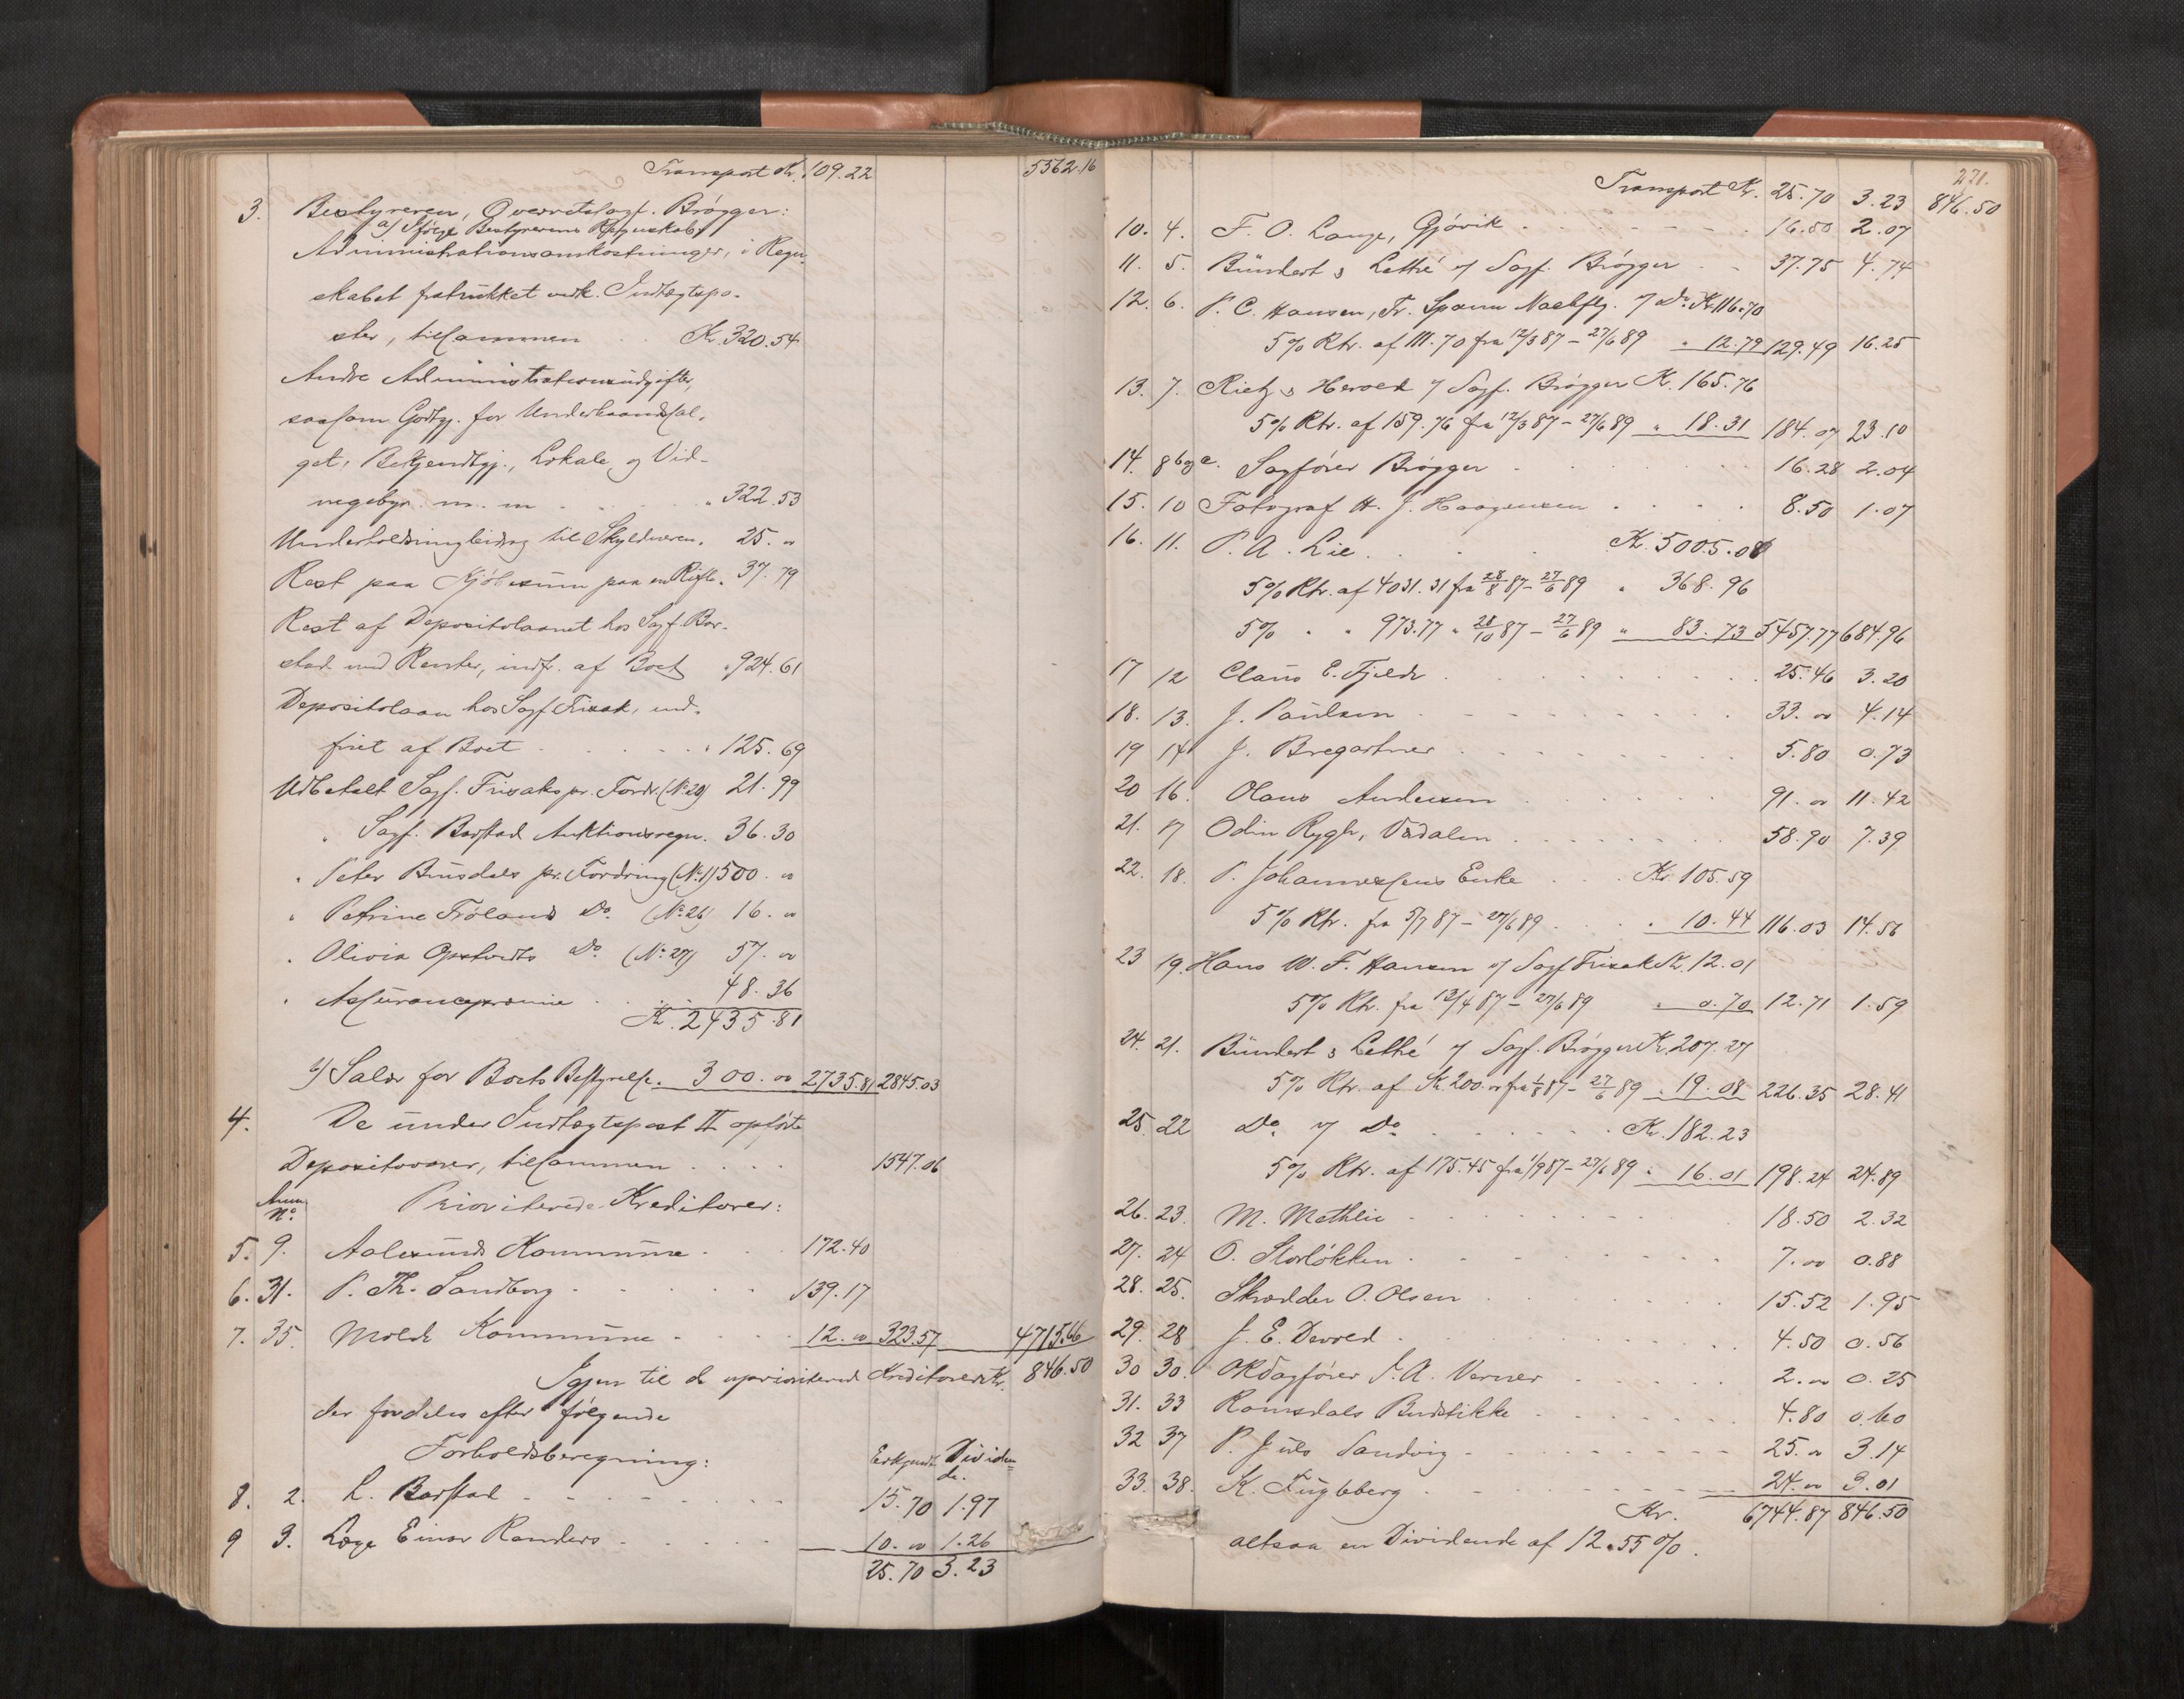 Transport Kr. 109.22 5562.16
3. Bestyreren, Overretssagf. Brøgger:
a) Ifølge Bestyrerens Regnskab
Administrationsomkostninger, i Regn-
skabet fratrukket vedk. Indtægtspo-
ster, tilsammen Kr. 320.54
Andre Administrationsudgifter,
saasom Godtgj. for Underhaandssal-
get, Bekjendtgj., Lokale og Vid-
negebyr m. m " 322.53
Underholdningsbidrag til Skyldneren " 25. "
Rest paa Kjøbesum paa en Rifle " 37.79
Rest af Depositolaanet hos Sagf. Bar-
stad med Renter, indfr. af Boet " 924.61
Depositolaan hos Sagf. Frisak, ind-
friet af Boet " 125.69
Udbetalt Sagf. Frisaks pr. Fordr. (No 20) 21.99
" Sagf. Barstad Auktionsregn. 36.30
" Peter Buusdals pr. Fordring (No 1) 500. "
" Petrine Frøland Do (No 26) 16. "
" Olivia Opstvedts Do (No 27) 57. "
" Assurancepræmie 48.36
Kr. 2435.81
b) Salær for Boets Bestyrelse " 300. " 2735.81 2845.03
4. De under Indtægtspost II opførte
Depositovarer, tilsammen 1547.06
Anm. No. Prioriterede Kreditorer:
5. 9. Aalesunds Kommune 172.40
6. 31. P. Th. Sandborg 139.17
7. 35. Molde Kommune 12. " 323.57 4715.66
Igjen til de uprioriterede Kreditorer Kr. 846.50
der fordeles efter følgende
Forholdsberegning: Erkjendt Dividen-
de.
8. 2. L. Barstad 15.70 1.97
9 3. Læge Einar Randers 10. " 1.26
25.70 3.23
271.
Transport Kr. 25.70 3.23 846.50
10. 4. F. O. Lange, Gjøvik 16.50 2.07
11. 5. Bündert & Lethé v/ Sagf. Brøgger 37.75 4.74
12. 6. P. C. Hansen, Fr. Spann Nachflg. v/ Do Kr. 116.70
5% Rtr. af 111.70 fra 12/3 87 – 27/6 89 " 12.79 129.49 16.25
13. 7. Rietz & Herold v/ Sagf. Brøgger Kr. 165.76
5% Rtr. af 159.76 fra 12/3 87 – 27/6 89 " 18.31 184.07 23.10
14. 8 b og c. Sagfører Brøgger 16.28 2.04
15. 10 Fotograf H. J. Haagensen 8.50 1.07
16. 11. P. A. Lie Kr. 5005.08
5% Rtr. af 4031.31 fra 28/8 87 – 27/6 89 " 368.96
5% " " 973.77 " 28/10 87 – 27/6 89 " 83.73 5457.77 684.96
17 12 Claus E. Fjeld 25.46 3.20
18. 13. J. Paulsen 33. " 4.14
19 14 J. Bregartner 5.80 0.73
20 16. Olaus Andersen 91. " 11.42
21. 17 Odin Rygh, Vadalen 58.90 7.39
22. 18. P. Johannessens Enke Kr. 105.59
5% Rtr. fra 5/7 87 – 27/6 89 " 10.44 116.03 14.56
23 19. Hans W. F. Hansen v/ Sagf. Frisak Kr. 12.01
5% Rtr. fra 12/4 87 – 27/6 89 " 0.70 12.71 1.59
24. 21. Bündert & Lethé v/ Sagf. Brøgger Kr. 207.27
5% Rtr. af Kr. 200. " fra 1/8 87 – 27/6 89 " 19.08 226.35 28.41
25. 22 Do v/ Do Kr. 182.23
5% Rtr. af 175.45 fra 1/9 87 – 27/6 89 " 16.01 198.24 24.89
26. 23. M. Methlie 18.50 2.32
27. 24 O. Storløkken 7. " 0.88
28. 25. Skrædder O. Olsen 15.52 1.95
29. 28 J. E. Devold 4.50 0.56
30 30. P. A. Verner 2. " 0.25
31. 33 Romsdals Budstikke 4.80 0.60
32 37 P. Juls Sandvig 25. " 3.14
33. 38. K. Fugleberg 24. " 3.01
Kr. 6744.87 846.50
altsaa en Dividende af 12.55%.